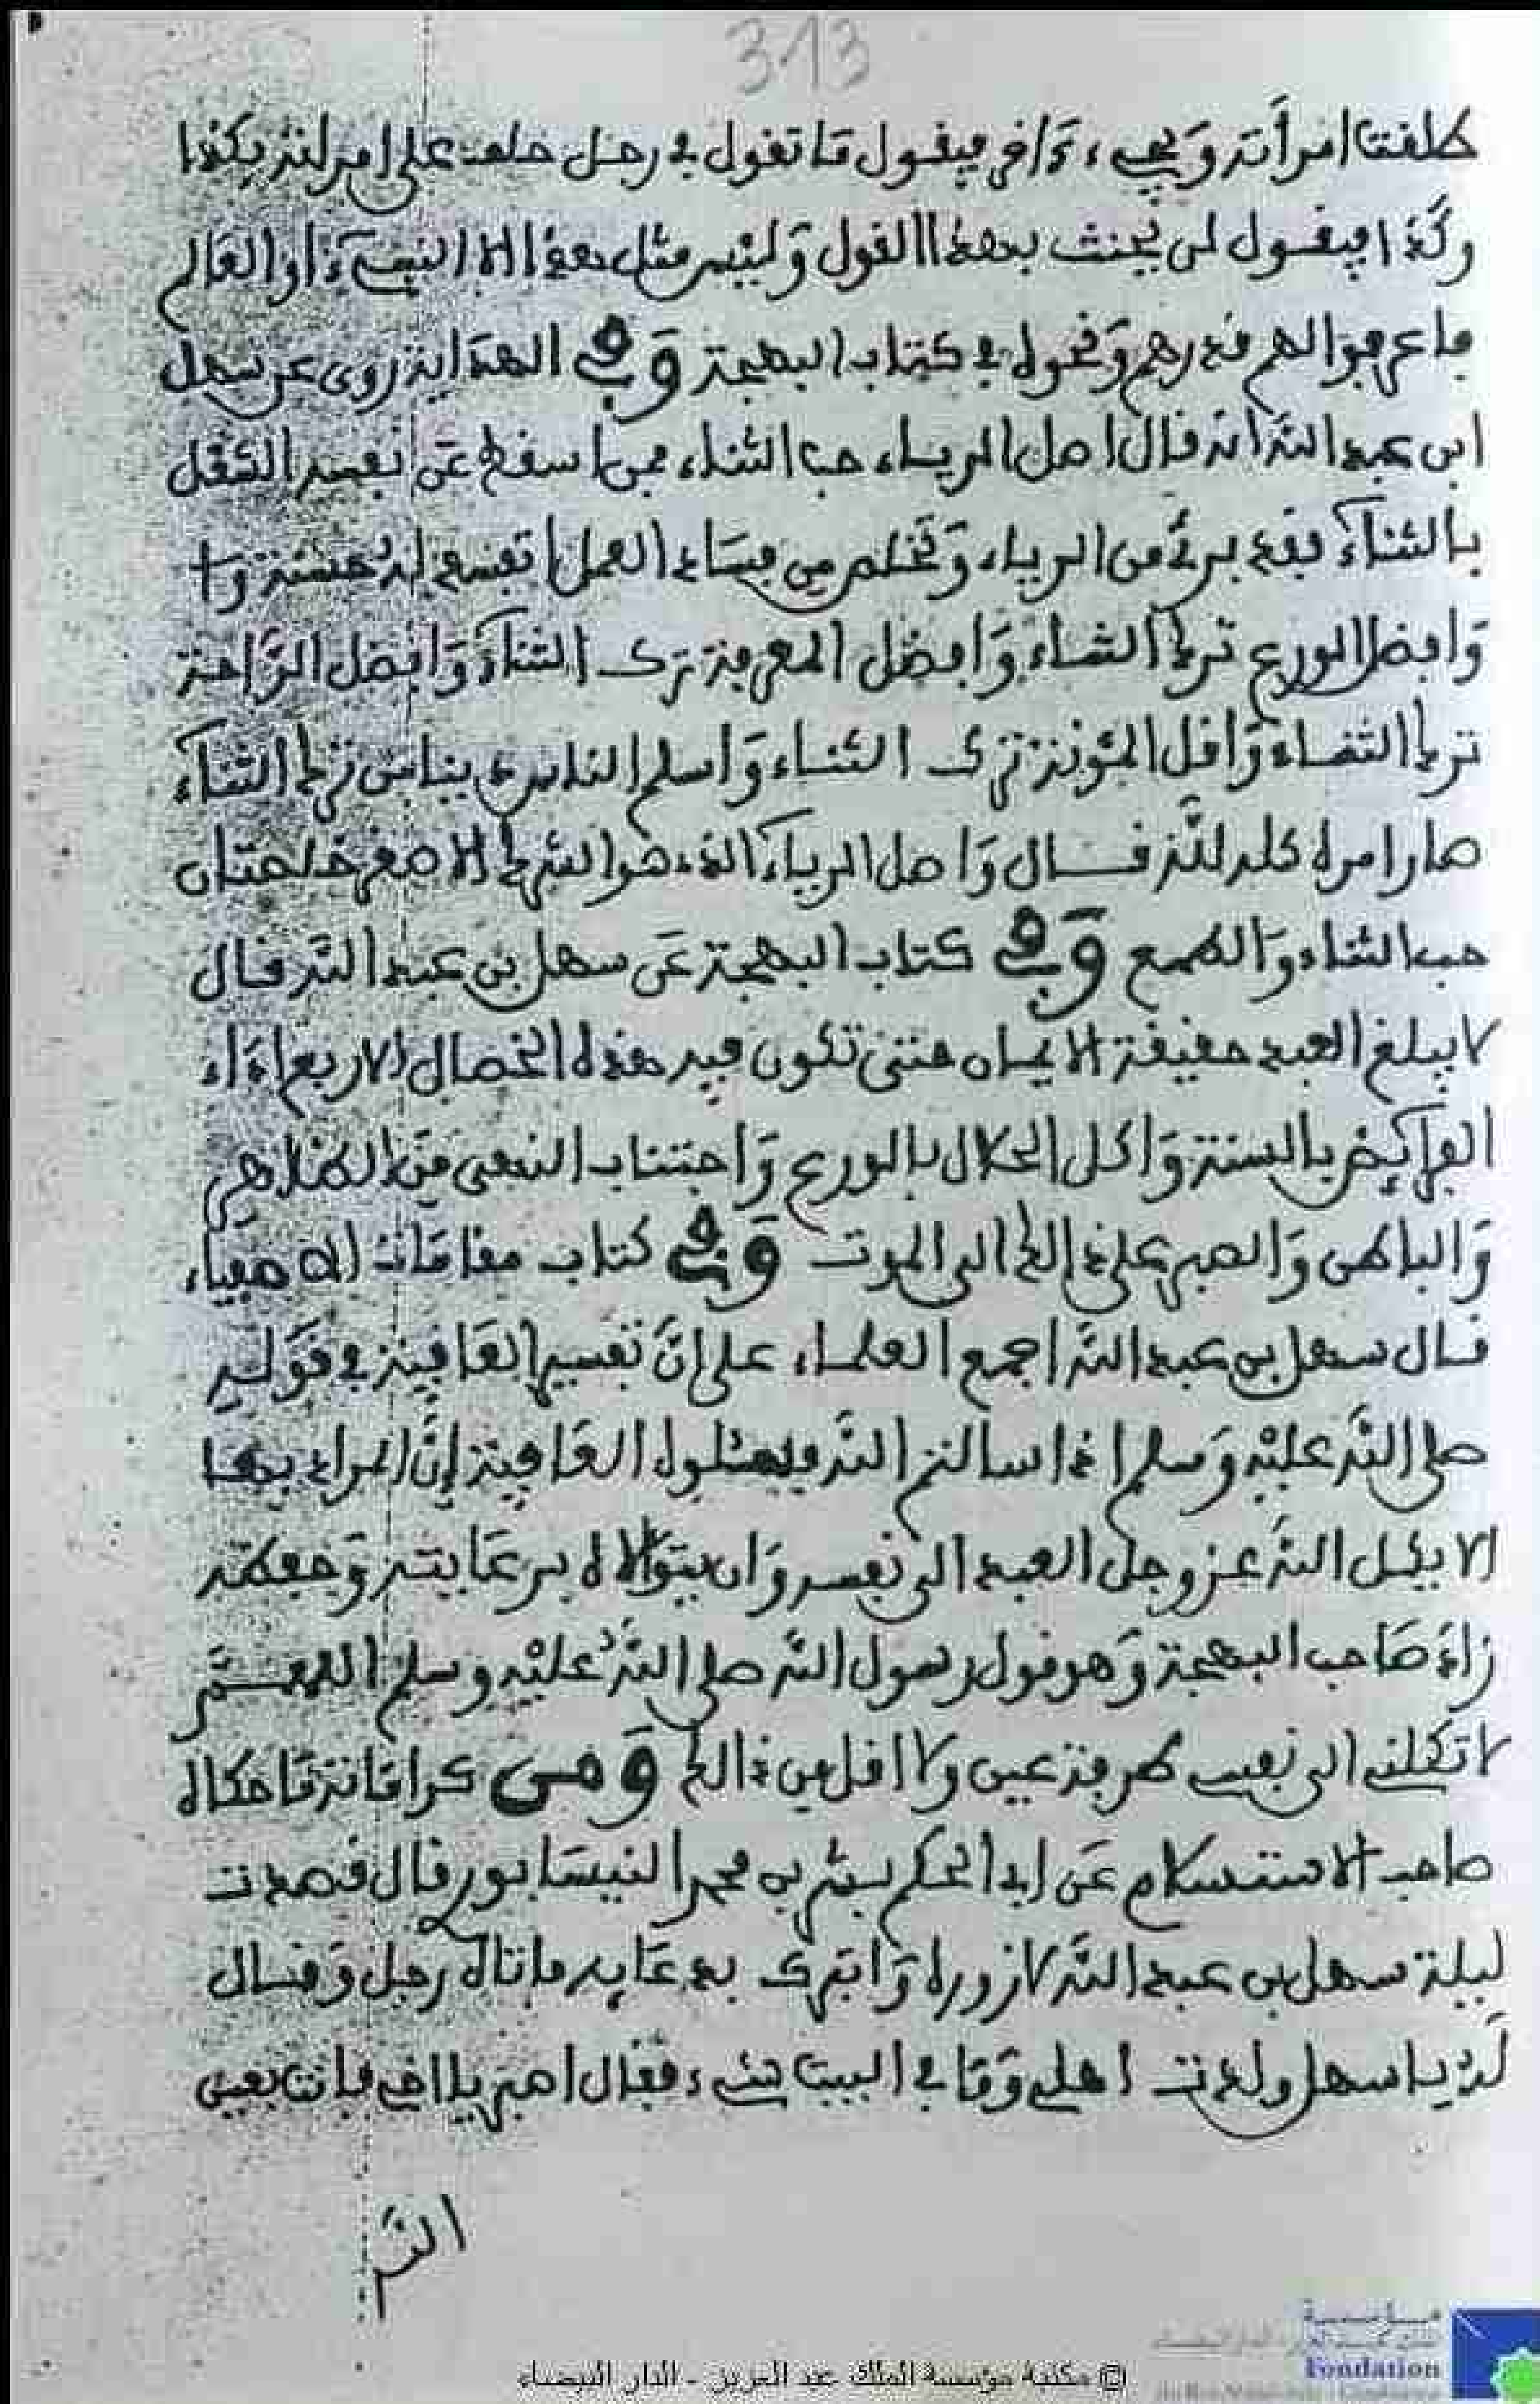 313
طلقت امرأته ويجيء ءاخر فيقول ما تقول في رجل حلف على امرأته بكذا
وكذا فيقول لم يحنث بهذا القول وليس مثل هذا إلا لنبيء أو العالم
فاعرفوا لهم قدرهم ونحوه في كتاب البهجة وفي الهداية روى عن سهل
ابن عبد الله انه قال اصل الرياء حب الثناء فمن اسقط عن نفسه الشغل
بالثناء فقد برئ من الرياء وتخلص من فساد العمل
وافضل الورع ترك الثناء وافضل المعرفة ترك الثناء وافضل الراحة
ترك الثناء واقل المؤونة ترك الثناء واسلم الناس دينا من ترك الثناء
صار امره كله لله قال واصل الرياء الذي هو الشرك الاصغر خصلتان
حب الثناء والطمع وفي كتاب البهجة عن سهل بن عبد الله قال
لا يبلغ العبد حقيقة الايمان حتى تكون فيه هذه الخصال الاربع اداء
الفرائض بالسنة واكل الحلال بالورع واجتناب النهي من الظاهر
والباطن والصبر على ذالك الى الموت وفي كتاب مقامات الاصفياء
قال سهل بن عبد الله اجمع العلماء على أن تفسير العافية في قوله
صلى الله عليه وسلم اذا سالتم الله فسلوه العافية إن المراد بها
الا يكل الله عز وجل العبد الى نفسه وان يتولاه برعايته وحفظه
زاد صاحب البهجة وهو قول رسول الله صلى الله عليه وسلم اللهم
لا تكلني الى نفسي طرفة عين ولا اقل من ذالك ومن كراماته ما حكاه
صاحب الاستسلام عن ابي الحكم بشر بن محمد النيسابوري قال قصدت
ليلة سهل بن عبد الله لازوره واتبرك بدعايه فاتاه رجل وقال
له يا سهل ولدت اهلي وما في البيت شيء فقال اصبر يا اخي فان يعني
الله
مؤسسة
Fondation
© مكتبة مؤسسة الملك عبد العزيز - الدار البيضاء